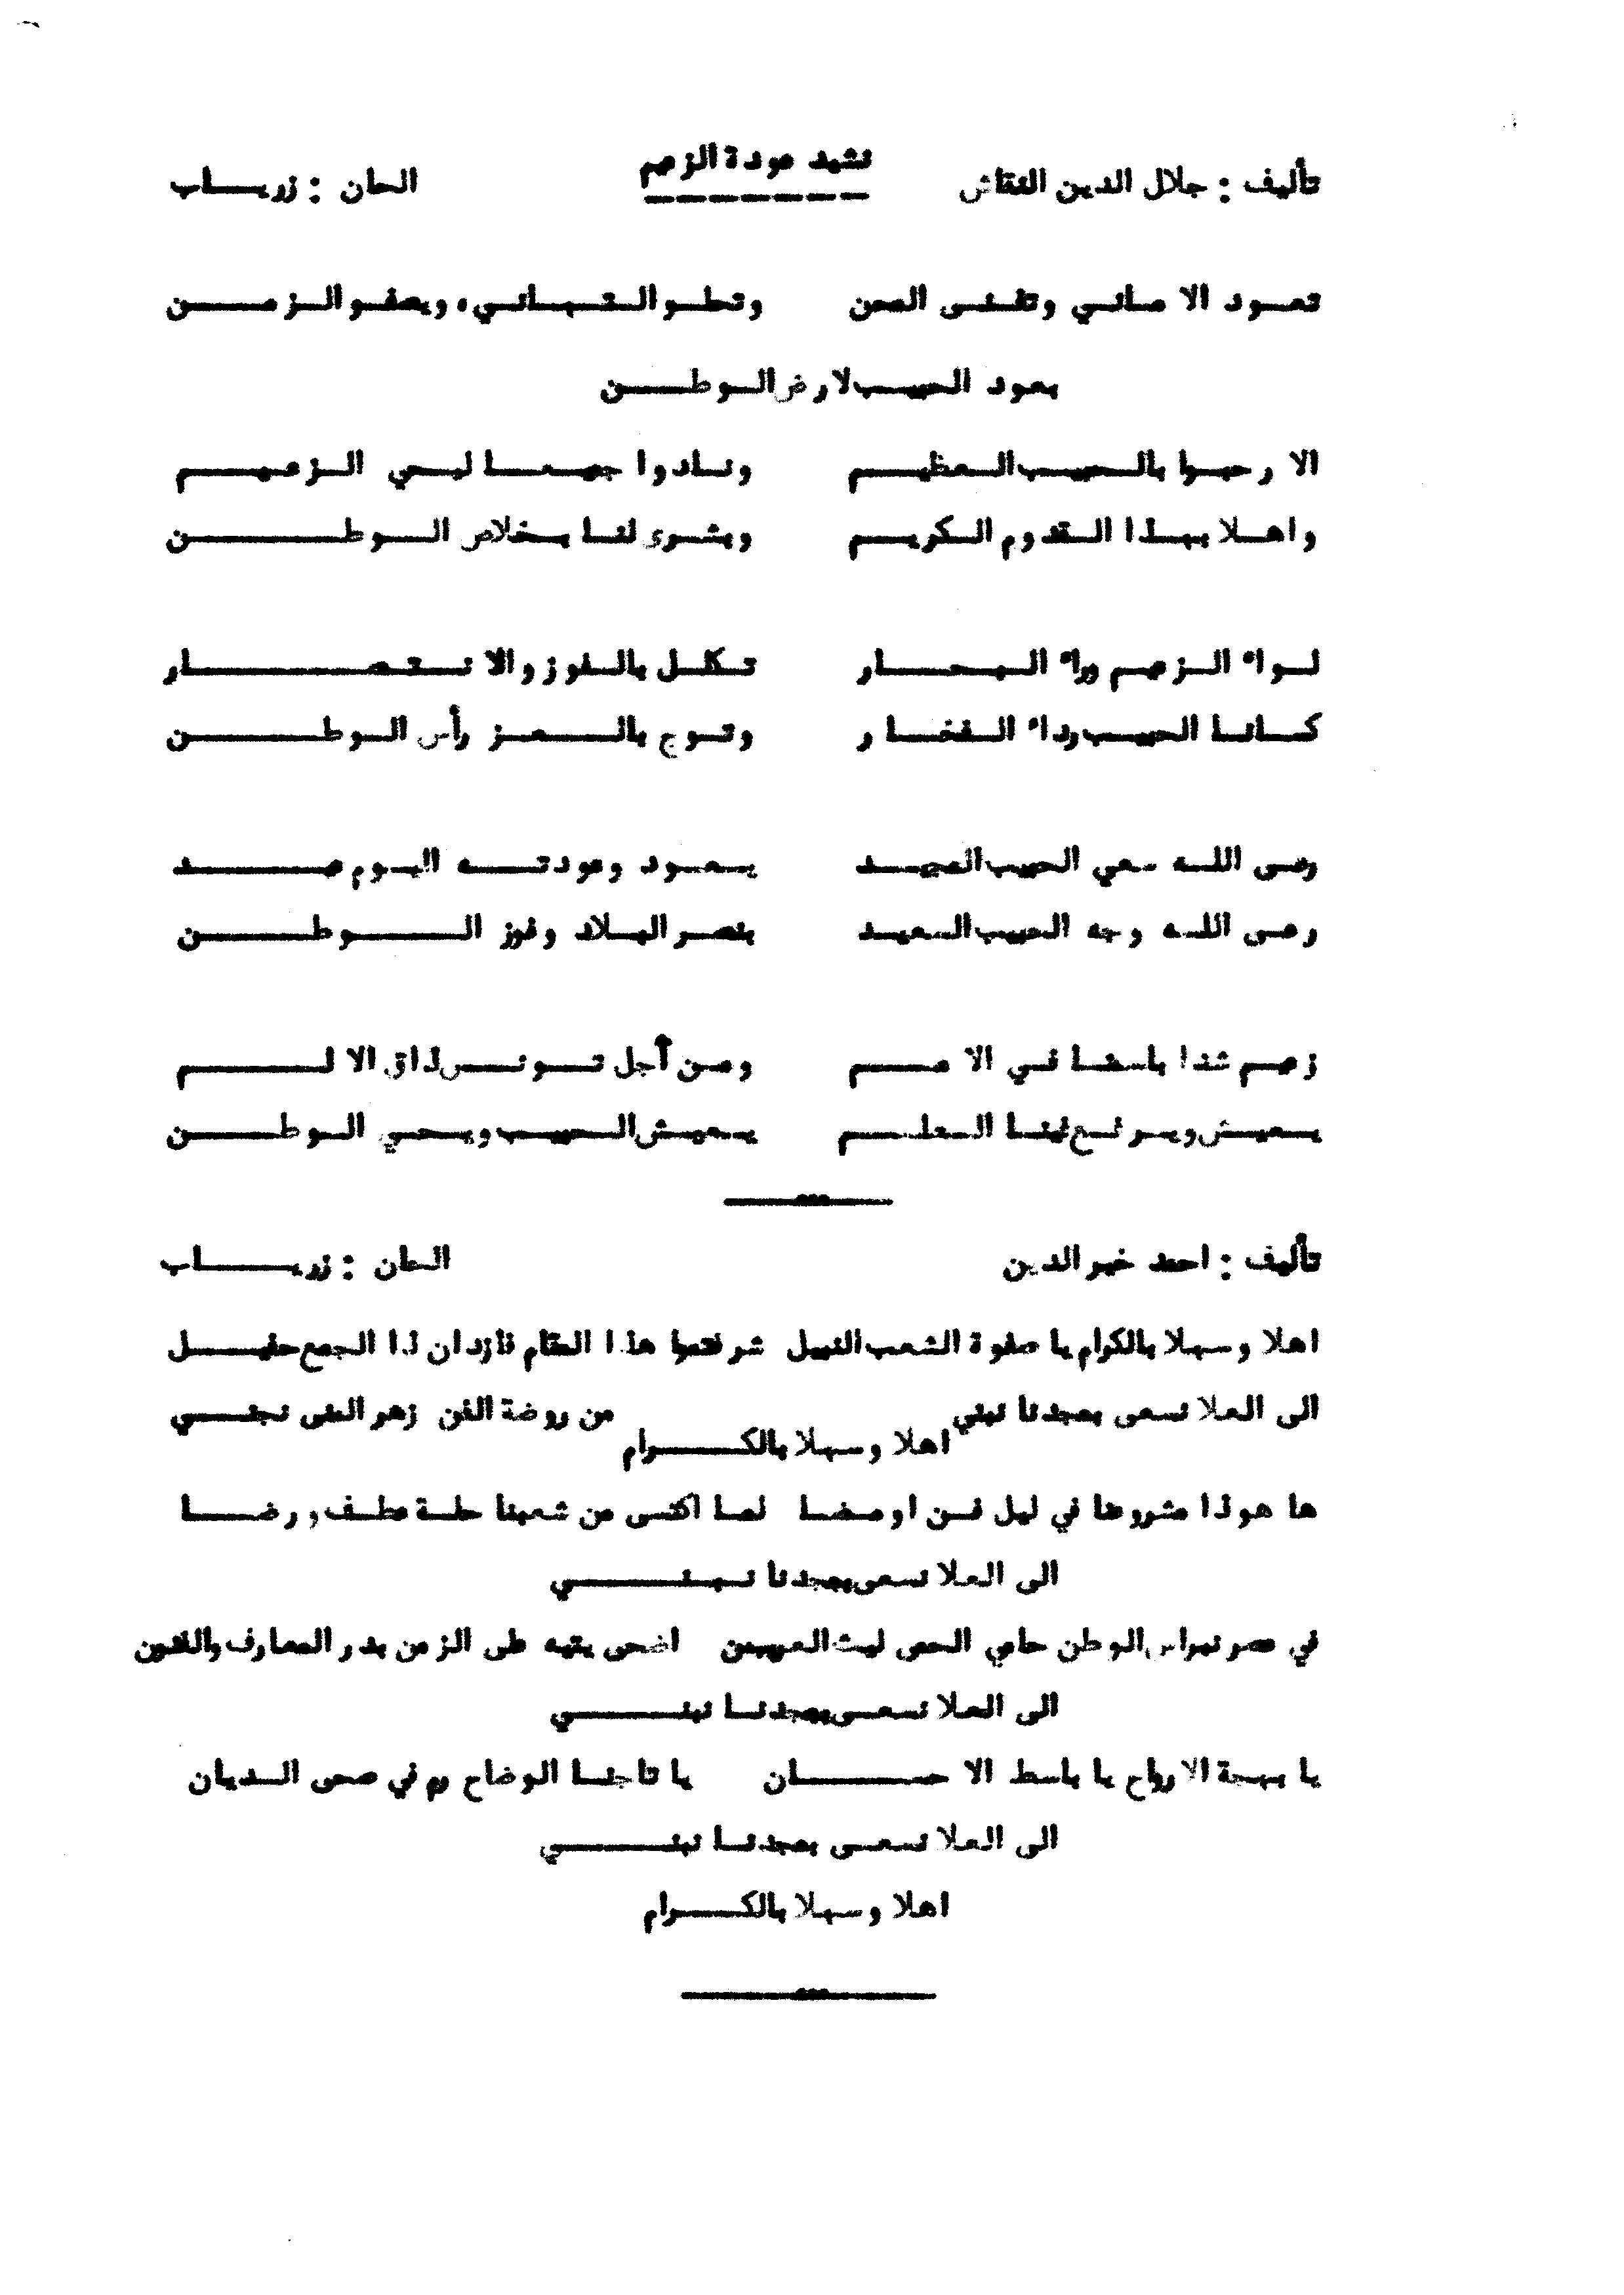 نشيد عودة الزعيم
تأليف : جلال الدين النقاش الحان : زرياب
تعود الاماني وتفنى المحن وتحلو التهاني، ويصفو الزمن
بعود الحبيب لارض الوطن
الا رحبوا بالحبيب العظيم ونادوا جميعا ليحي الزعيم
واهلا بهذا القدوم الكريم وبشرى لنا بخلاص الوطن
لواء الزعيم وراء البحار تكلل بالفوز والانتصار
كسانا الحبيب رداء الفخار وتوج بالعز رأس الوطن
رعى الله سعي الحبيب المجيد يعود وعودته اليوم عيد
رعى الله وجه الحبيب السعيد بنصر البلاد وفوز الوطن
زعيم شذا باسقا في الامم ومن أجل تونس ذاق الالم
يعيش ويرفع فينا العلم يعيش الحبيب ويحي الوطن
تأليف : احمد خير الدين الحان : زرياب
اهلا وسهلا بالكرام يا صفوة الشعب النبيل شرفتموا هذا المقام فازدان ذا الجمع حفيل
الى العلا نسعى بمجدنا نبني من روضة الفن زهر المنى نجني
اهلا وسهلا بالكرام
ها هو ذا مشروعنا في ليل فن اومضا لما اكتسى من شعبنا حلة عطف ورضا
الى العلا نسعى بمجدنا نبني
في عصر نبراس الوطن حامي الحمى ليث العرين اضحى يتيه على الزمن بدر المعارف والفنون
الى العلا نسعى بمجدنا نبني
يا بهجة الارواح يا باسط الاحسان يا تاجنا الوضاح دم في حمى الديان
الى العلا نسعى بمجدنا نبني
اهلا وسهلا بالكرام